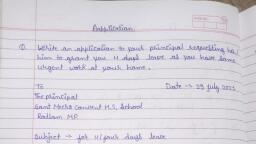 Application
Q. Write an application to your principal requesting
him to grant you 4 days leave as you have some
urgent work at your home.
To Date → 29 July
The principal
Sant Meera Convent H.S. School
Ratlam M.P.
Subject → for 4/four days leave